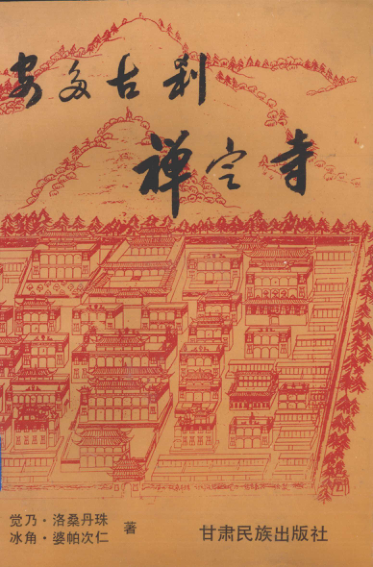 安多古刹
禅定寺
觉乃·洛桑丹珠
冰角·婆帕次仁
著
甘肃民族出版社